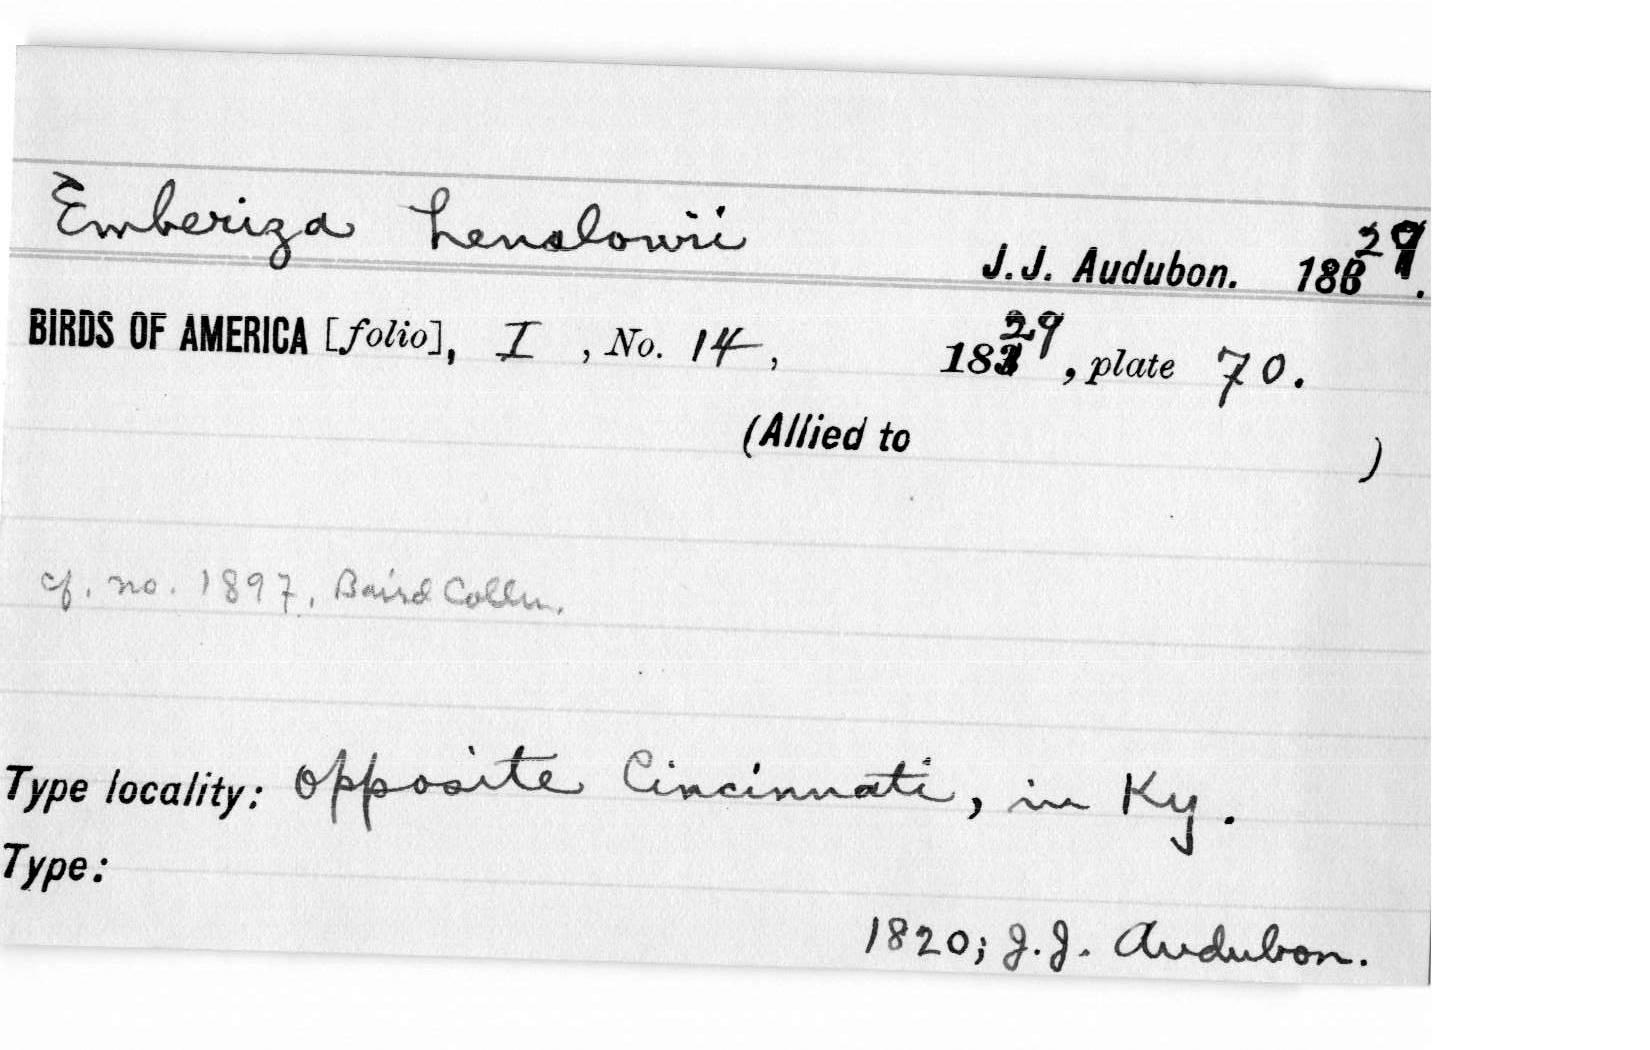 Emberiza henslowii
J. J. Audubon. 1829.
BIRDS OF AMERICA [folio], I, No. 14, 1829, plate 70.
(Allied to )
cf. no. 1897, Baird Colln.
Type locality: Opposite Cincinnati, in Ky.
Type:
1820; J. J. Audubon.